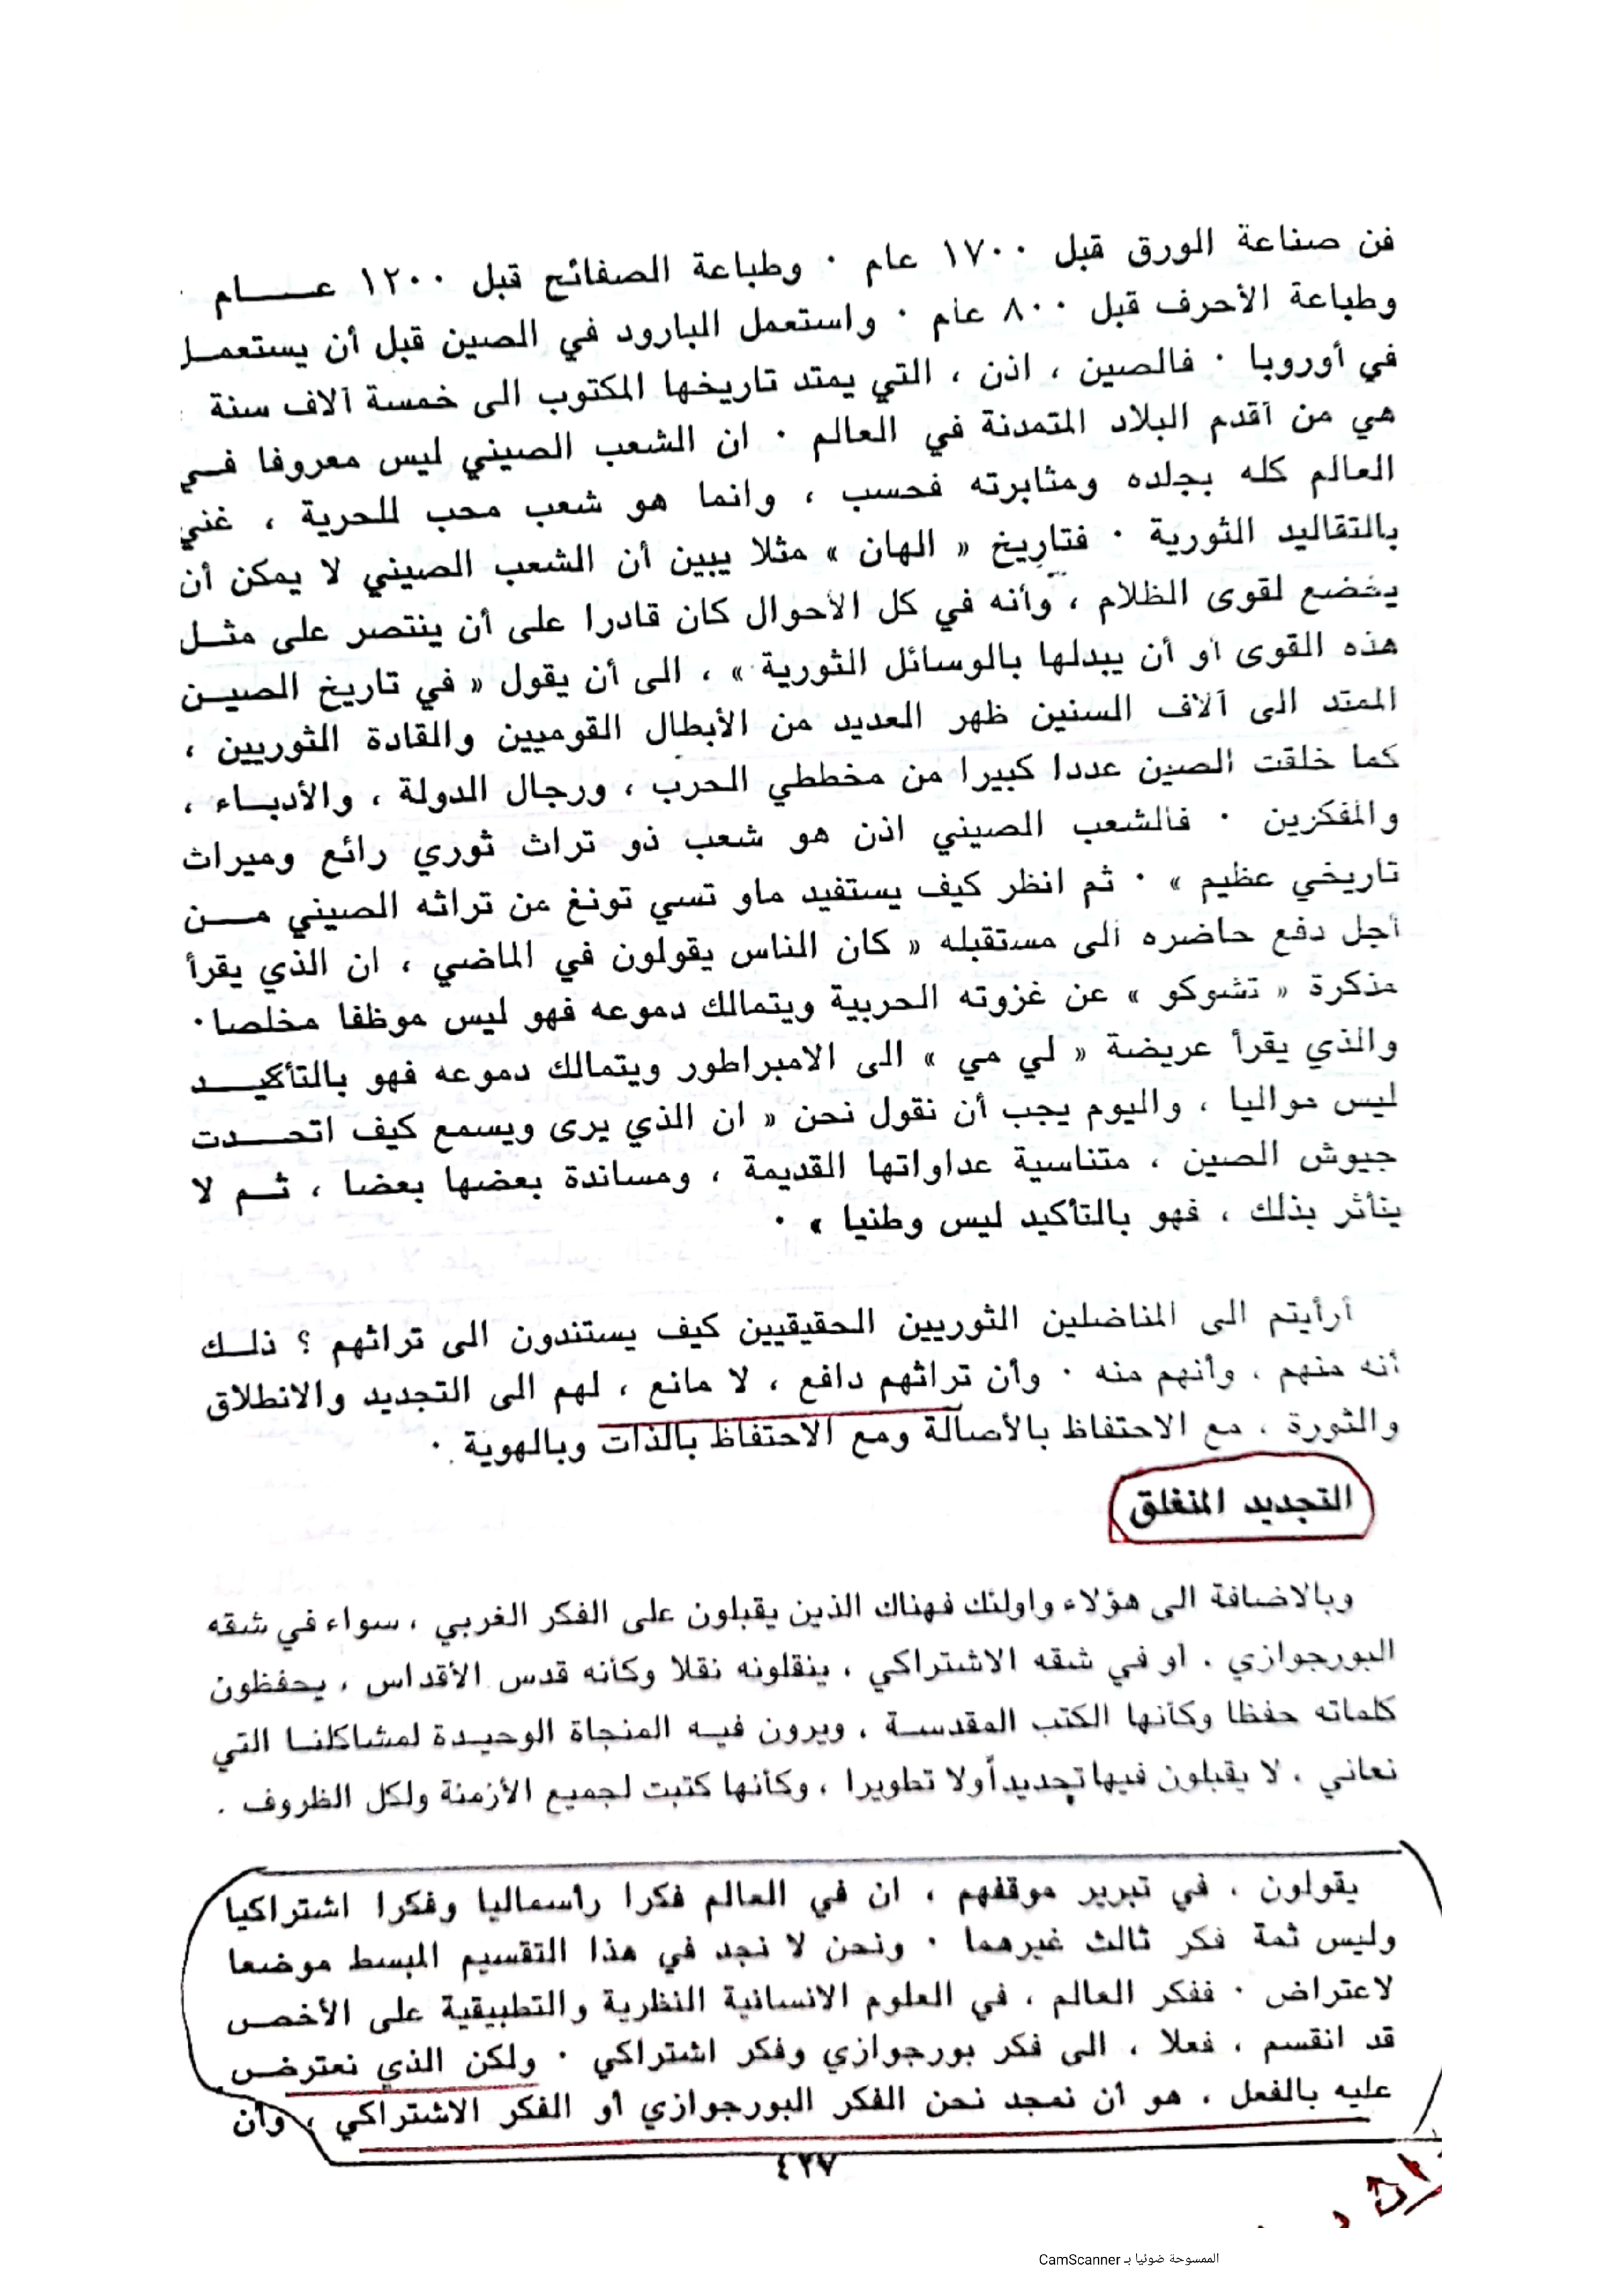 فن صناعة الورق قبل ١٧٠٠ عام ٠ وطباعة الصفائح قبل ١٢٠٠ عـــام
وطباعة الأحرف قبل ٨٠٠ عام ٠ واستعمل البارود في الصين قبل أن يستعمـل
في أوروبا ٠ فالصين ، اذن ، التي يمتد تاريخها المكتوب الى خمسة آلاف سنة
هي من أقدم البلاد المتمدنة في العالم ٠ ان الشعب الصيني ليس معروفا فـي
العالم كله بجلده ومثابرته فحسب ، وانما هو شعب محب للحرية ، غني
بالتقاليد الثورية ٠ فتاريخ « الهان » مثلا يبين أن الشعب الصيني لا يمكن أن
يخضع لقوى الظلام ، وأنه في كل الأحوال كان قادرا على أن ينتصر على مثـل
هذه القوى أو أن يبدلها بالوسائل الثورية » ، الى أن يقول « في تاريخ الصيـن
الممتد الى آلاف السنين ظهر العديد من الأبطال القوميين والقادة الثوريين ،
كما خلقت الصين عددا كبيرا من مخططي الحرب ، ورجال الدولة ، والأدبـاء ،
والمفكرين ٠ فالشعب الصيني اذن هو شعب ذو تراث ثوري رائع وميراث
تاريخي عظيم » ٠ ثم انظر كيف يستفيد ماو تسي تونغ من تراثه الصيني مـــن
أجل دفع حاضره الى مستقبله « كان الناس يقولون في الماضي ، ان الذي يقرأ
مذكرة « تشوكو » عن غزوته الحربية ويتمالك دموعه فهو ليس موظفا مخلصا ٠
والذي يقرأ عريضة « لي مي » الى الامبراطور ويتمالك دموعه فهو بالتأكيـــد
ليس مواليا ، واليوم يجب أن نقول نحن « ان الذي يرى ويسمع كيف اتحـــدت
جيوش الصين ، متناسية عداواتها القديمة ، ومساندة بعضها بعضا ، ثـم لا
يتأثر بذلك ، فهو بالتأكيد ليس وطنيا » ٠
أرأيتم الى المناضلين الثوريين الحقيقيين كيف يستندون الى تراثهم ؟ ذلـك
أنه منهم ، وأنهم منه ٠ وأن تراثهم دافع ، لا مانع ، لهم الى التجديد والانطلاق
والثورة ، مع الاحتفاظ بالأصالة ومع الاحتفاظ بالذات وبالهوية ٠
التجديد المنغلق
وبالاضافة الى هؤلاء واولئك فهناك الذين يقبلون على الفكر الغربي ، سواء في شقه
البورجوازي . او في شقه الاشتراكي ، ينقلونه نقلا وكأنه قدس الأقداس ، يحفظون
كلماته حفظا وكأنها الكتب المقدسـة ، ويرون فيـه المنجاة الوحيـدة لمشاكلنـا التي
نعاني ، لا يقبلون فيها تجديداً ولا تطويرا ، وكأنها كتبت لجميع الأزمنة ولكل الظروف .
يقولون ، في تبرير موقفهم ، ان في العالم فكرا رأسماليا وفكرا اشتراكيا
وليس ثمة فكر ثالث غيرهما ٠ ونحن لا نجد في هذا التقسيم المبسط موضعا
لاعتراض ٠ ففكر العالم ، في العلوم الانسانية النظرية والتطبيقية على الأخص
قد انقسم ، فعلا ، الى فكر بورجوازي وفكر اشتراكي ٠ ولكن الذي نعترض
عليه بالفعل ، هو أن نمجد نحن الفكر البورجوازي أو الفكر الاشتراكي ، وأن
٤٢٧
الممسوحة ضوئيا بـ CamScanner